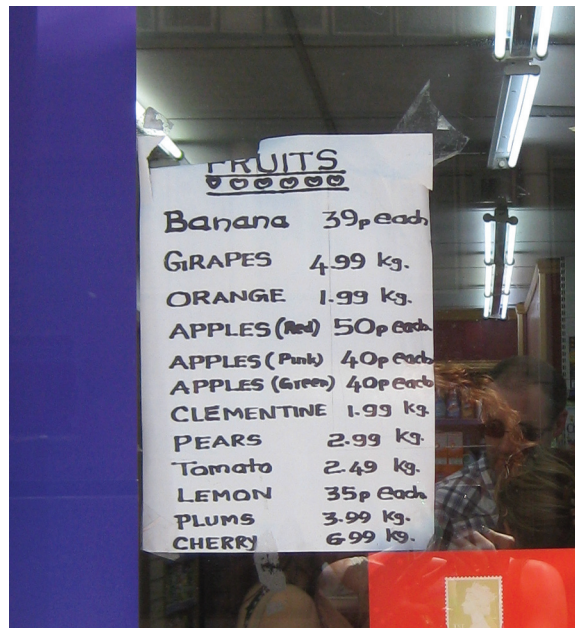 FRUITS
Banana 39p each
GRAPES 4.99 kg.
ORANGE 1.99 kg.
APPLES (Red) 50p each
APPLES (Pink) 40p each
APPLES (Green) 40p each
CLEMENTINE 1.99 kg.
PEARS 2.99 kg.
Tomato 2.49 kg.
LEMON 35p each
PLUMS 3.99 kg.
CHERRY 6.99 kg.